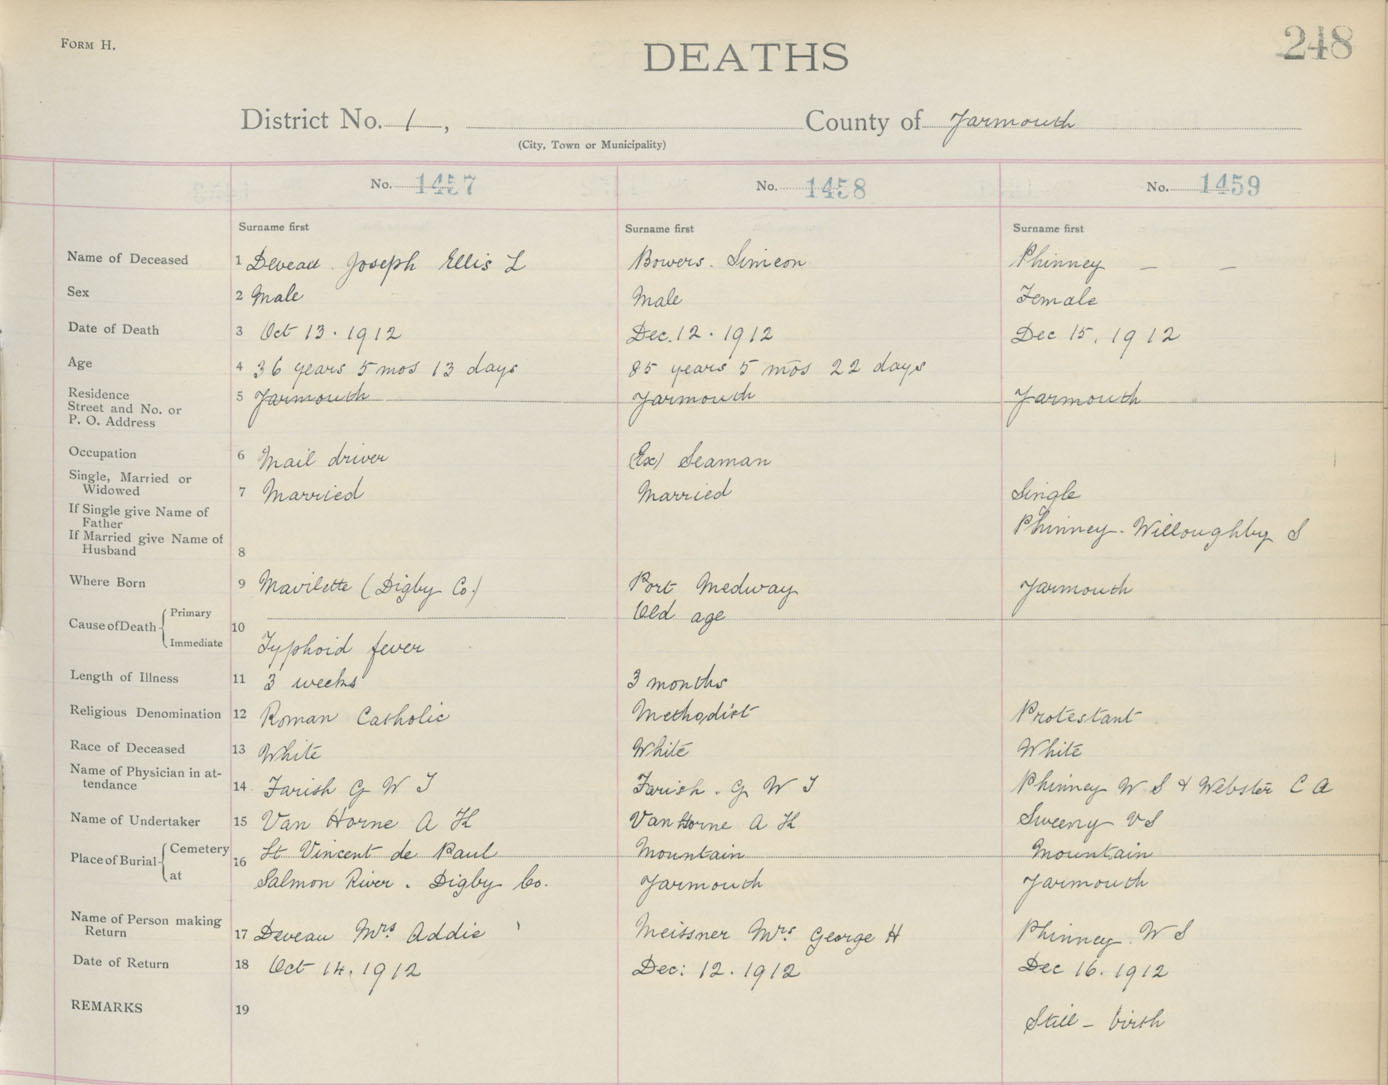 FORM H.
DEATHS
248
District No. 1, County of Yarmouth
(City, Town or Municipality)
No. 1457 No. 1458 No. 1459
Surname first Surname first Surname first
Name of Deceased 1 Deveau Joseph Ellis L Bowers. Simeon Phinney — —
Sex 2 Male Male Female
Date of Death 3 Oct 13. 1912 Dec. 12. 1912 Dec 15, 1912
Age 4 36 years 5 mos 13 days 85 years 5 mos 22 days
Residence
Street and No. or
P. O. Address
5 Yarmouth Yarmouth Yarmouth
Occupation 6 Mail driver (Ex) Seaman
Single, Married or
Widowed
7 Married Married Single
If Single give Name of
Father
If Married give Name of
Husband
8 Phinney. Willoughby S
Where Born 9 Mavilette (Digby Co.) Port Medway Yarmouth
Cause of Death Primary Old age
10
Immediate Typhoid fever
Length of Illness 11 3 weeks 3 months
Religious Denomination 12 Roman Catholic Methodist Protestant
Race of Deceased 13 White White White
Name of Physician in at-
tendance
14 Farish G W T Farish. G W T Phinney W S & Webster C A
Name of Undertaker 15 Van Horne A K Van Horne A K Sweeny V S
Place of Burial Cemetery 16 St Vincent de Paul Mountain Mountain
at Salmon River. Digby Co. Yarmouth Yarmouth
Name of Person making
Return
17 Deveau Mrs Addie Meissner Mrs George H Phinney. W S
Date of Return 18 Oct 14. 1912 Dec: 12. 1912 Dec 16. 1912
REMARKS 19 Still - birth